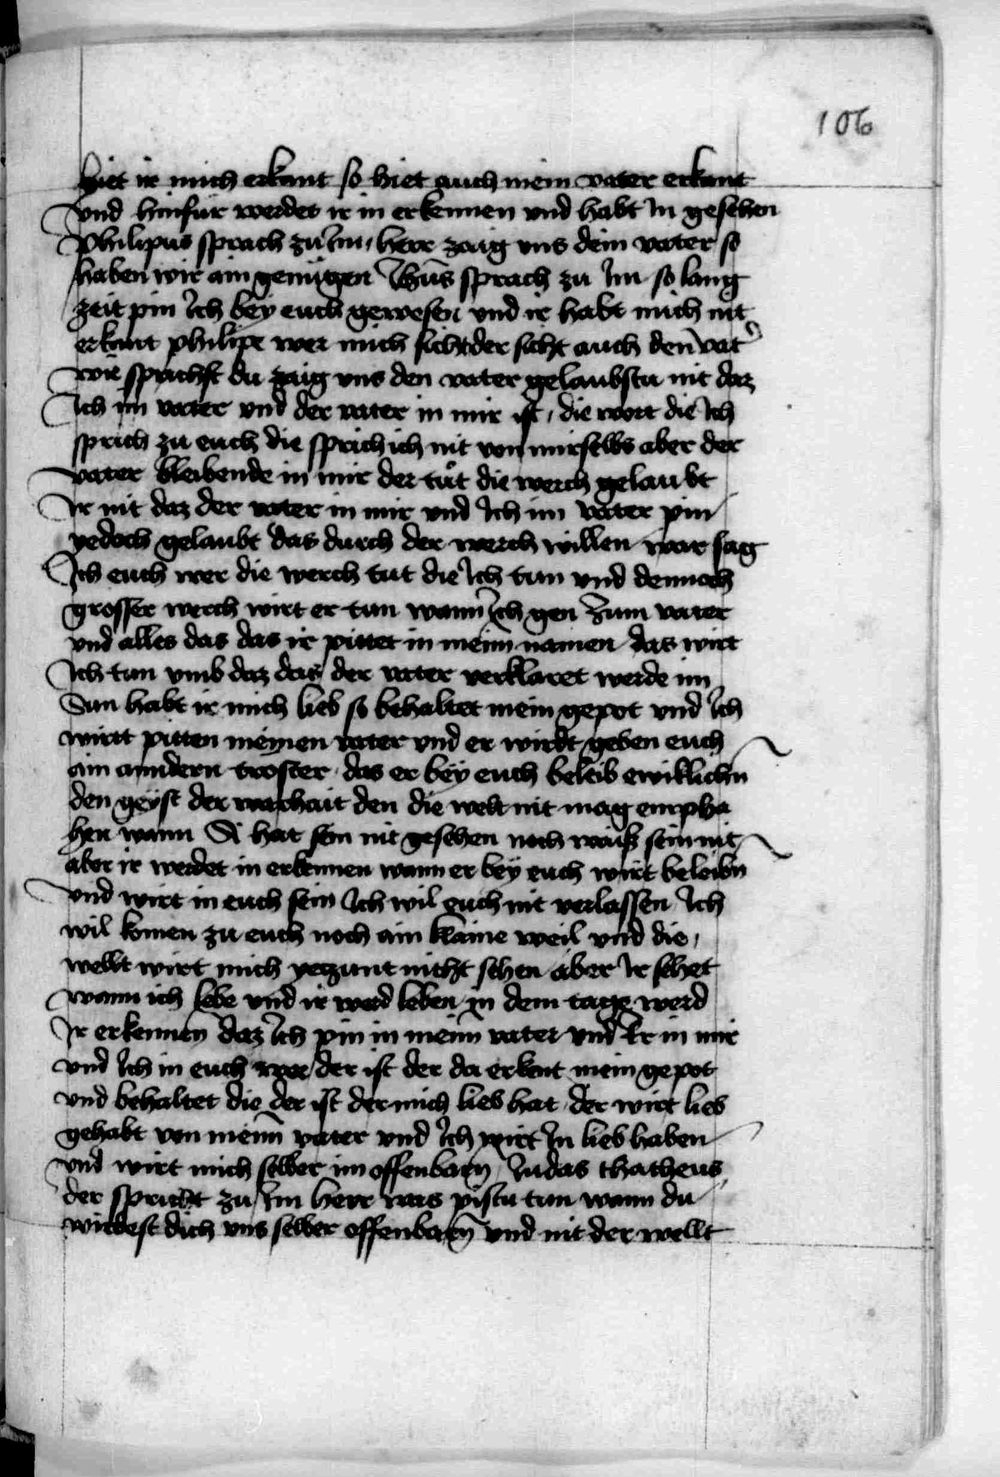 106
hiet ir mich erkant so hiet auch mein vater erkant
vnd hinfür werdet ir in erkennen vnd habt In gesehen
Philipus sprach zu Im, herr zaig vns dein vater so
haben wir ain genügen Ihūs sprach zu Im so lang
zeit pin Ich bey euch gewesen vnd ir habt mich nit
erkant philipe wer mich sicht der sicht auch den vat̄
wie sprichst du zaig vns den vater gelaubstu nit daz
Ich im vater vnd der vater in mir ist, die wort die Ich
sprich zu euch die sprich ich nit von mir selbs aber der
vater bleibende in mir der tůt die werch gelaubt
Ir nit daz der vater in mir vnd Ich im vater pin
yedoch gelaubt das durch der werch willen war sag
Ich euch wer die werch tut die Ich tun vnd dennoch
grosser werch wirt er tun wann Ich gen zum vater
vnd alles das das ir pittet in meim namen das wirt
Ich tun vmb daz das der vater verklaret werde im
Sun habt ir mich lieb so behaltet mein gepot vnd Ich
wirt pitten meinen vater vnd er wirdt geben euch
ain anndern troster, das er bey euch beleib ewiklichn
den geyst der warhait den die welt nit mag empha
hen wann Si hat sein nit gesehen noch waiß sein nit
aber ir werdet in erkennen wann er bey euch wirt beleibn
vnd wirt in euch sein Ich wil euch nit verlassen Ich
wil komen zu euch noch ain klaine weil vnd die,
wellt wirt mich yeczunt nicht sehen aber Ir sehet
wann ich lebe vnd ir werd leben in dem tage werd
Ir erkennen daz Ich pin in meim vater vnd Er in mir
vnd Ich in euch wer der ist der da erkent mein gepot
vnd behaltet die der ist der mich lieb hat der wirt lieb
gehabt von meim vater vnd Ich wirt In lieb haben
vnd wirt mich selber im offenbarn Iudas thatheus
der spricht zu Im herr was pistu tun wann du
wirdest dich vns selber offenbarn vnd nit der wellt